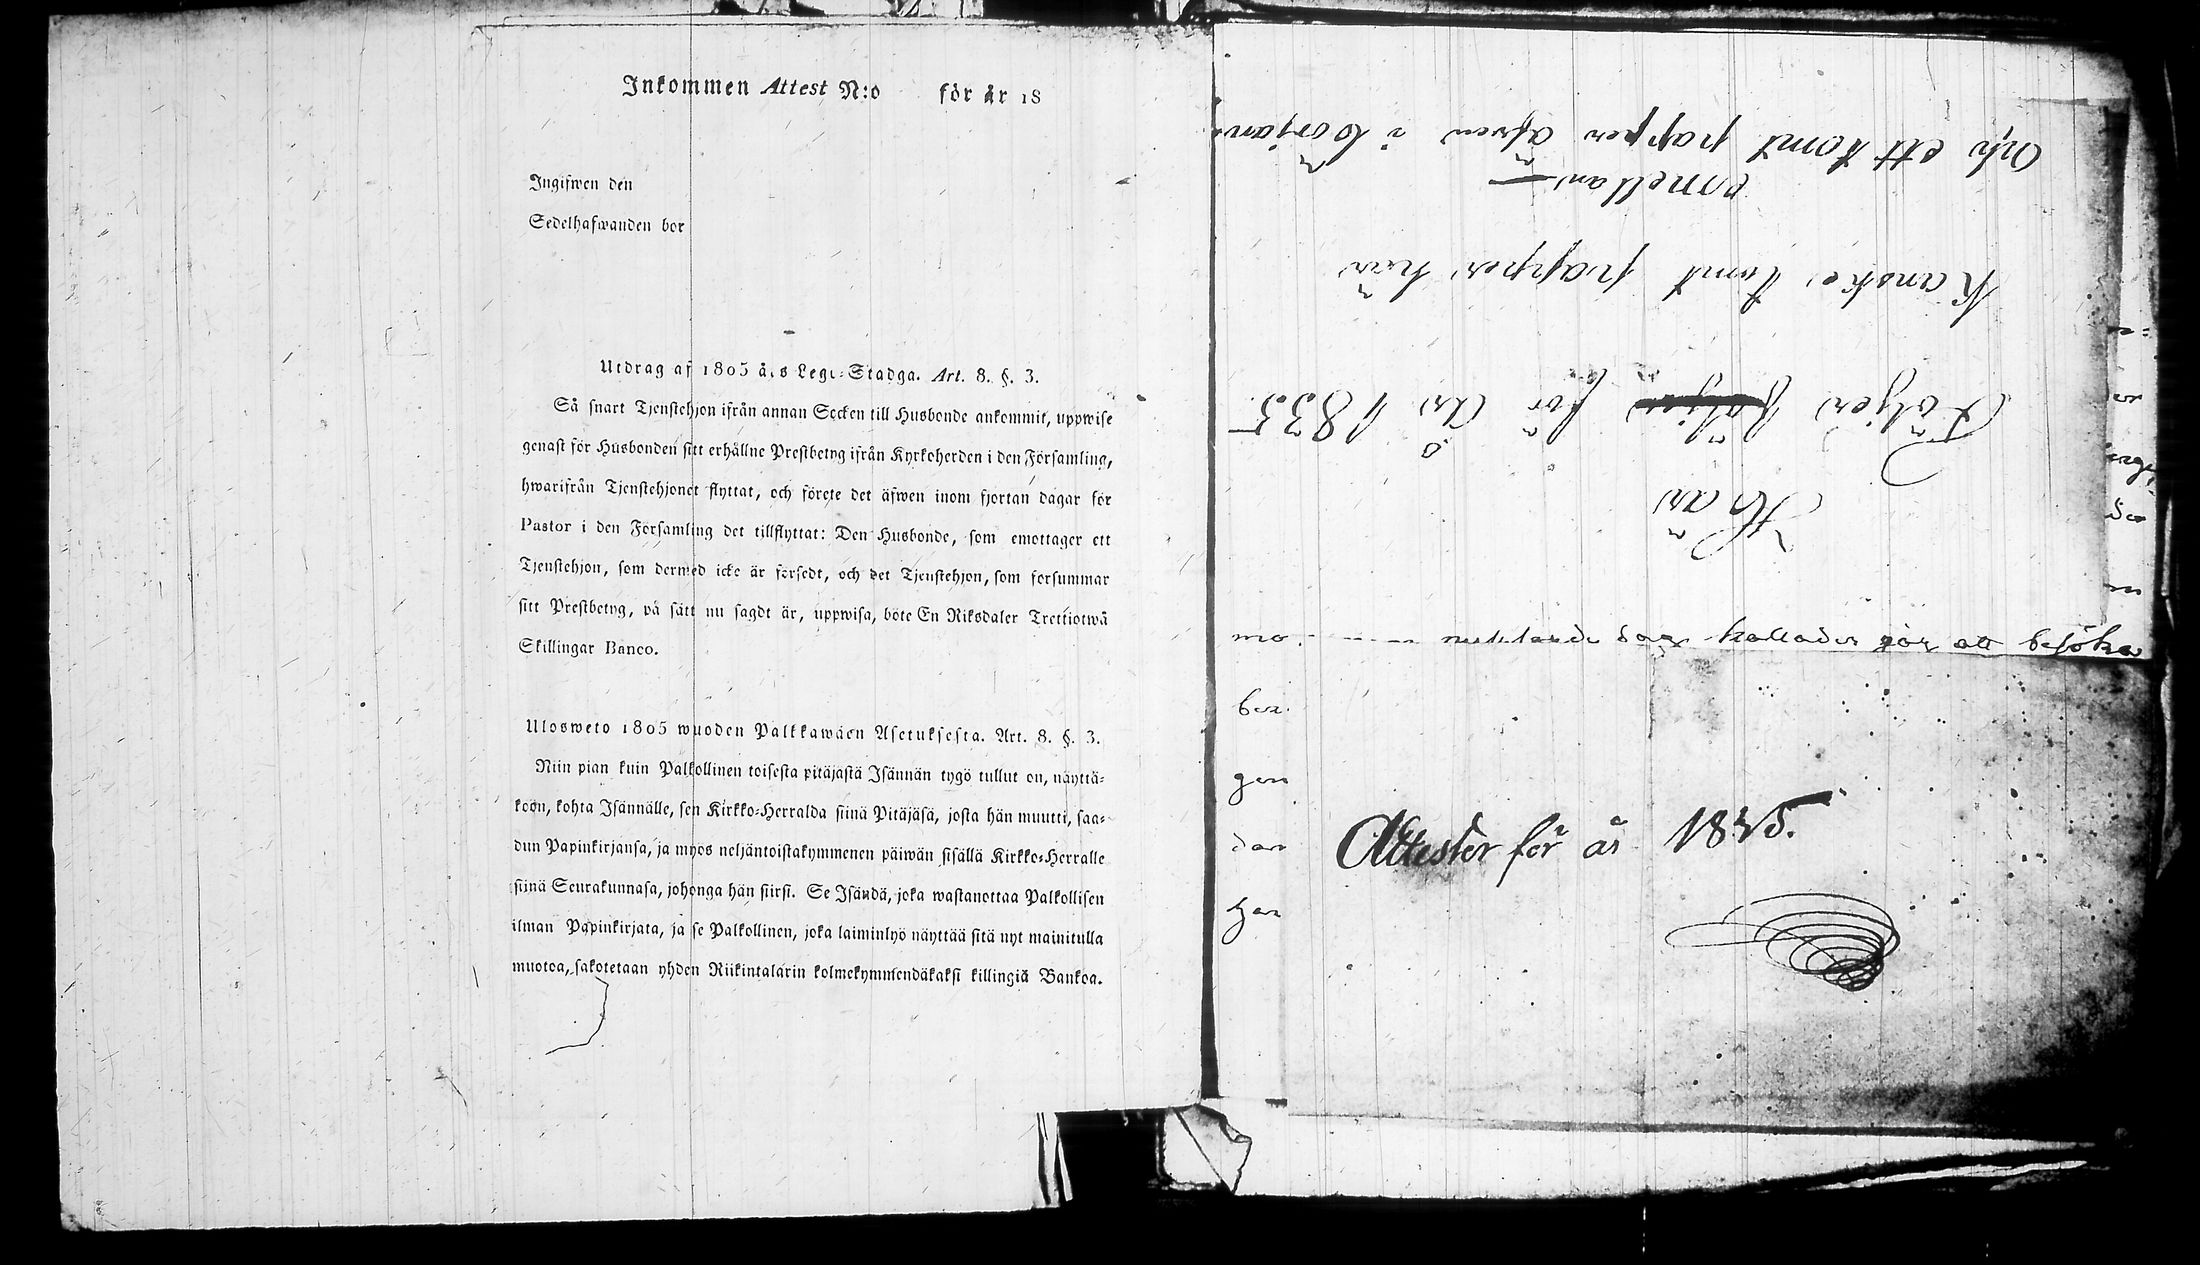 Inkommen Attest N:o för år 18
Ingifwen den
Sedelhafwanden bor
Utdrag af 1805 års Lego-Stadga. Art. 8. §. 3.
Så snart Tjenstehjon ifrån annan Socken till Husbonde ankommit, uppwise
genast för Husbonden sitt erhållne Prestbetyg ifrån Kyrkoherden i den Församling,
hwarifrån Tjenstehjonet flyttat, och förete det äfwen inom fjortan dagar för
Pastor i den Församling det tillflyttat: Den Husbonde, som emottager ett
Tjenstehjon, som dermed icke är försedt, och det Tjenstehjon, som försummar
sitt Prestbetyg, på sätt nu sagdt är, uppwisa, böte En Riksdaler Trettiotwå
Skillingar Banco.
Ulosweto 1805 wuoden Palkkawäen Asetuksesta. Art. 8. §. 3.
Niin pian kuin Palkollinen toisesta pitäjästä Isännän tygö tullut on, näyttä-
köön, kohta Isännälle, sen Kirkko-Herralda siinä Pitäjäsä, josta hän muutti, saa-
dun Papinkirjansa, ja myös neljäntoistakymmenen päiwän sisällä Kirkko-Herralle
siinä Seurakunnasa, johonga hän siirsi. Se Isändä, joka wastanottaa Palkollisen
ilman Papinkirjata, ja se Palkollinen, joka laiminlyö näyttää sitä nyt mainitulla
muotoa, sakotetaan yhden Riikintalarin kolmekymmendäkaksi killingiä Bankoa.
Här
Följer följer för År 1835
Kanske tomt papper här
emellan
Och ett tomt papper äfven i början
mo. dag kallades för att besöka
ber.
gen
dar
har
Attester för år 1835.